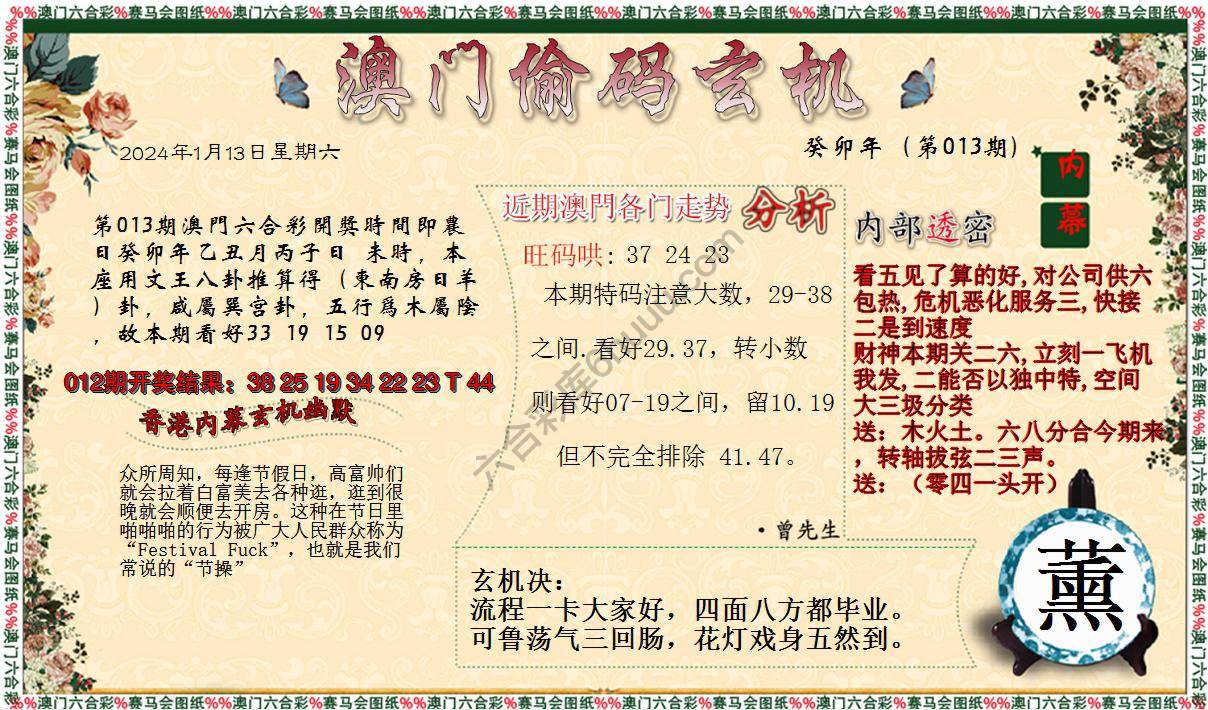 %%澳门六合彩%赛马会图纸%%澳门六合彩%赛马会图纸%%澳门六合彩%赛马会图纸%%澳门六合彩%赛马会图纸%%澳门六合彩%赛马会图纸%%澳门六合彩%赛马会图纸%%
澳门偷码玄机
2024年1月13日星期六
癸卯年（第013期）
内幕
第013期澳門六合彩開獎時間即農
日癸卯年乙丑月丙子日 未時，本
座用文王八卦推算得（東南房日羊
）卦，咸屬巽宫卦，五行爲木屬陰
，故本期看好33 19 15 09
012期开奖结果：38 25 19 34 22 23 T 44
香港内幕玄机幽默
众所周知，每逢节假日，高富帅们
就会拉着白富美去各种逛，逛到很
晚就会顺便去开房。这种在节日里
啪啪啪的行为被广大人民群众称为
“Festival Fuck”，也就是我们
常说的“节操”
近期澳門各门走势 分析
旺码哄: 37 24 23
本期特码注意大数，29-38
之间.看好29.37，转小数
则看好07-19之间，留10.19
但不完全排除 41.47。
·曾先生
内部透密
看五见了算的好,对公司供六
包热,危机恶化服务三,快接
二是到速度
财神本期关二六,立刻一飞机
我发,二能否以独中特,空间
大三圾分类
送：木火土。六八分合今期来
，转轴拔弦二三声。
送：（零四一头开）
玄机决：
流程一卡大家好，四面八方都毕业。
可鲁荡气三回肠，花灯戏身五然到。
薰